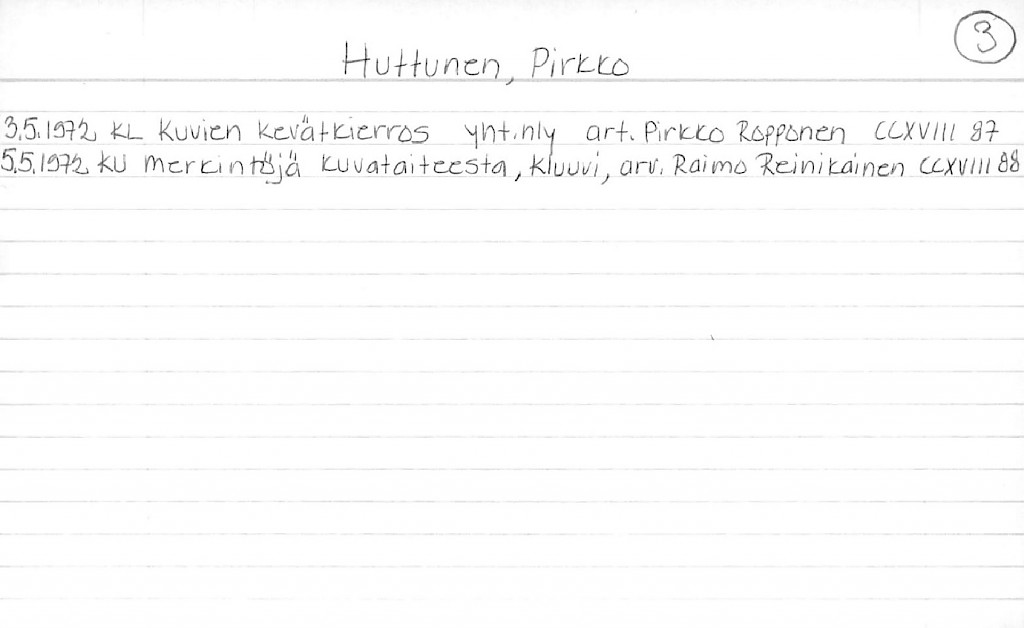 3
Huttunen, Pirkko
3.5.1972 KL Kuvien kevätkierros yht.nly art. Pirkko Ropponen CCXVIII 87
5.5.1972 KU merkintöjä kuvataiteesta, Kluuvi, arv. Raimo Reinikainen CCXVIII 88